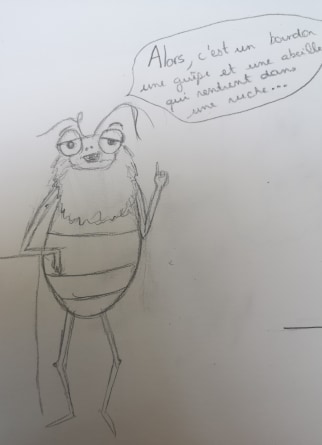 Alors, c'est un bourdon
une guêpe et une abeille
qui rentrent dans
une ruche...